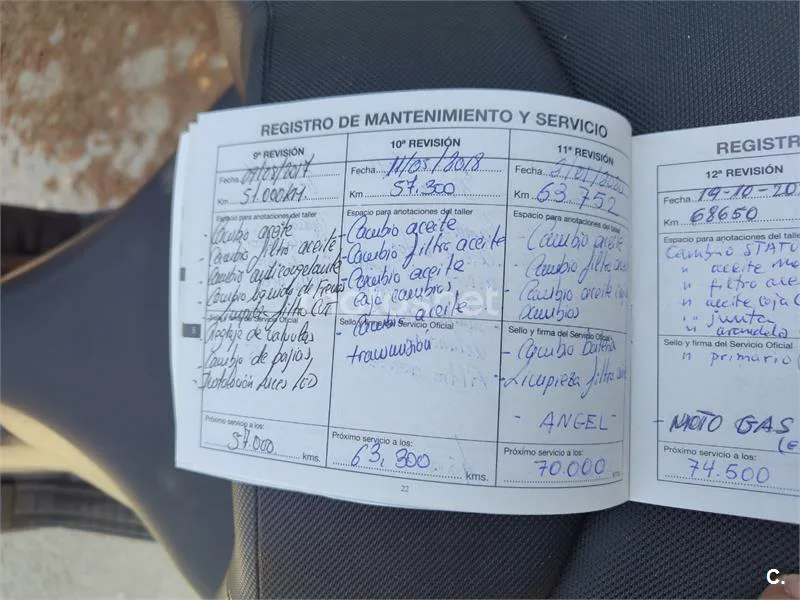 REGISTRO DE MANTENIMIENTO Y SERVICIO
9ª REVISIÓN
Fecha
Km 51.000KM
Espacio para anotaciones del taller
- Cambio aceite
- Cambio filtro aceite
- Cambio anticongelante
- Cambio liquido de Frenos
- filtro CUT
Sello y firma del Servicio Oficial
- Reglaje de valvulas
- Cambio de bujias,
- Instalación luces LED
Próximo servicio a los:
57.000 kms.
10ª REVISIÓN
Fecha 11/05/2018
Km 57.300
Espacio para anotaciones del taller
- Cambio aceite
- Cambio filtro aceite
- Cambio aceite
caja cambios
- Cambio aceite
Sello y firma del Servicio Oficial
transmisión
Próximo servicio a los:
63.300 kms.
11ª REVISIÓN
Fecha
Km 63.752
Espacio para anotaciones del taller
- Cambio aceite
- Cambio filtro aceite
- Cambio aceite
cambios
Sello y firma del Servicio Oficial
- Cambio bateria
- Limpieza filtro
- ANGEL -
Próximo servicio a los:
70.000 kms.
22
5
REGISTR
12ª REVISIÓN
Fecha 19-10-20
Km 68650
Espacio para anotaciones del taller
Cambio
" aceite
" filtro
" aceite caja
" junta
" arandela
Sello y firma del Servicio Oficial
" primario
- MOTO GAS
Próximo servicio a los:
74.500
motos.net
C.